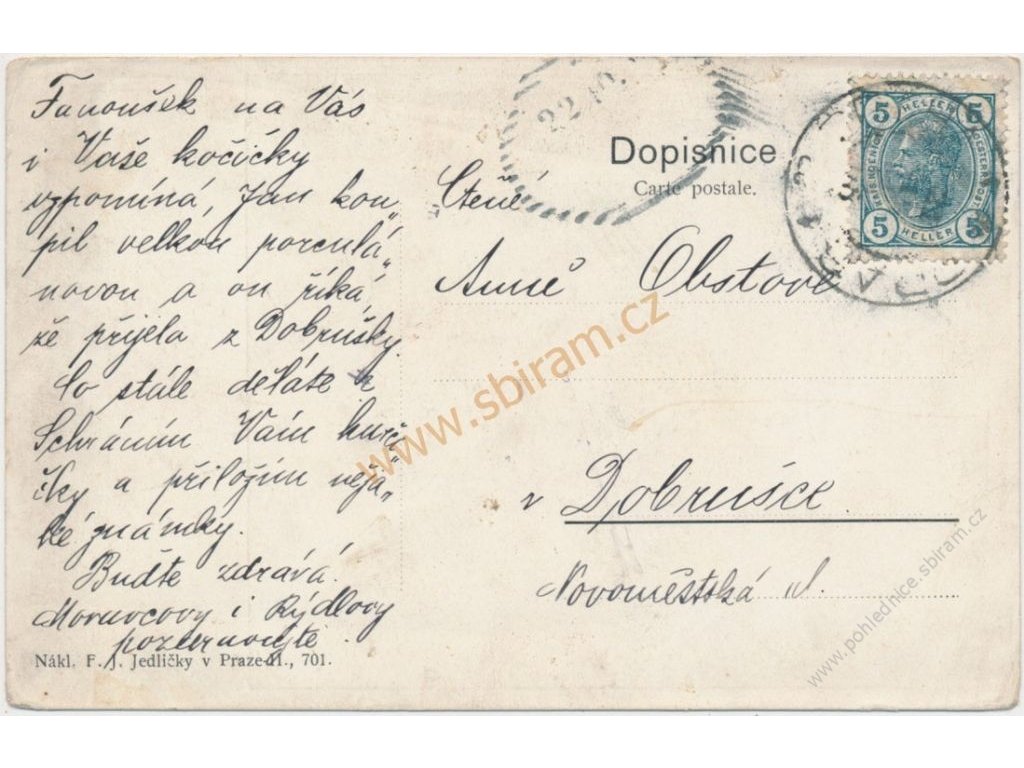 Fanoušek na Vás
i Vaše kočičky
vzpomíná, Jan kou„
pil velkou porculá„
novou a on říká,
že přijela z Dobrušky.
Co stále děláte
Schráním Vám
čky a přiložím něja„
ké známky.
Buďte zdráva.
Moravcovy i Rýdlovy
pozdravujte.
Nákl. F. J. Jedličky v Praze-II., 701.
22
Dopisnice
Carte postale.
5 HELLER 5
5 HELLER 5
Ctěné
Anně Obstové
v Dobrušce
Novoměstská ul.
www.sbiram.cz
www.pohlednice.sbiram.cz